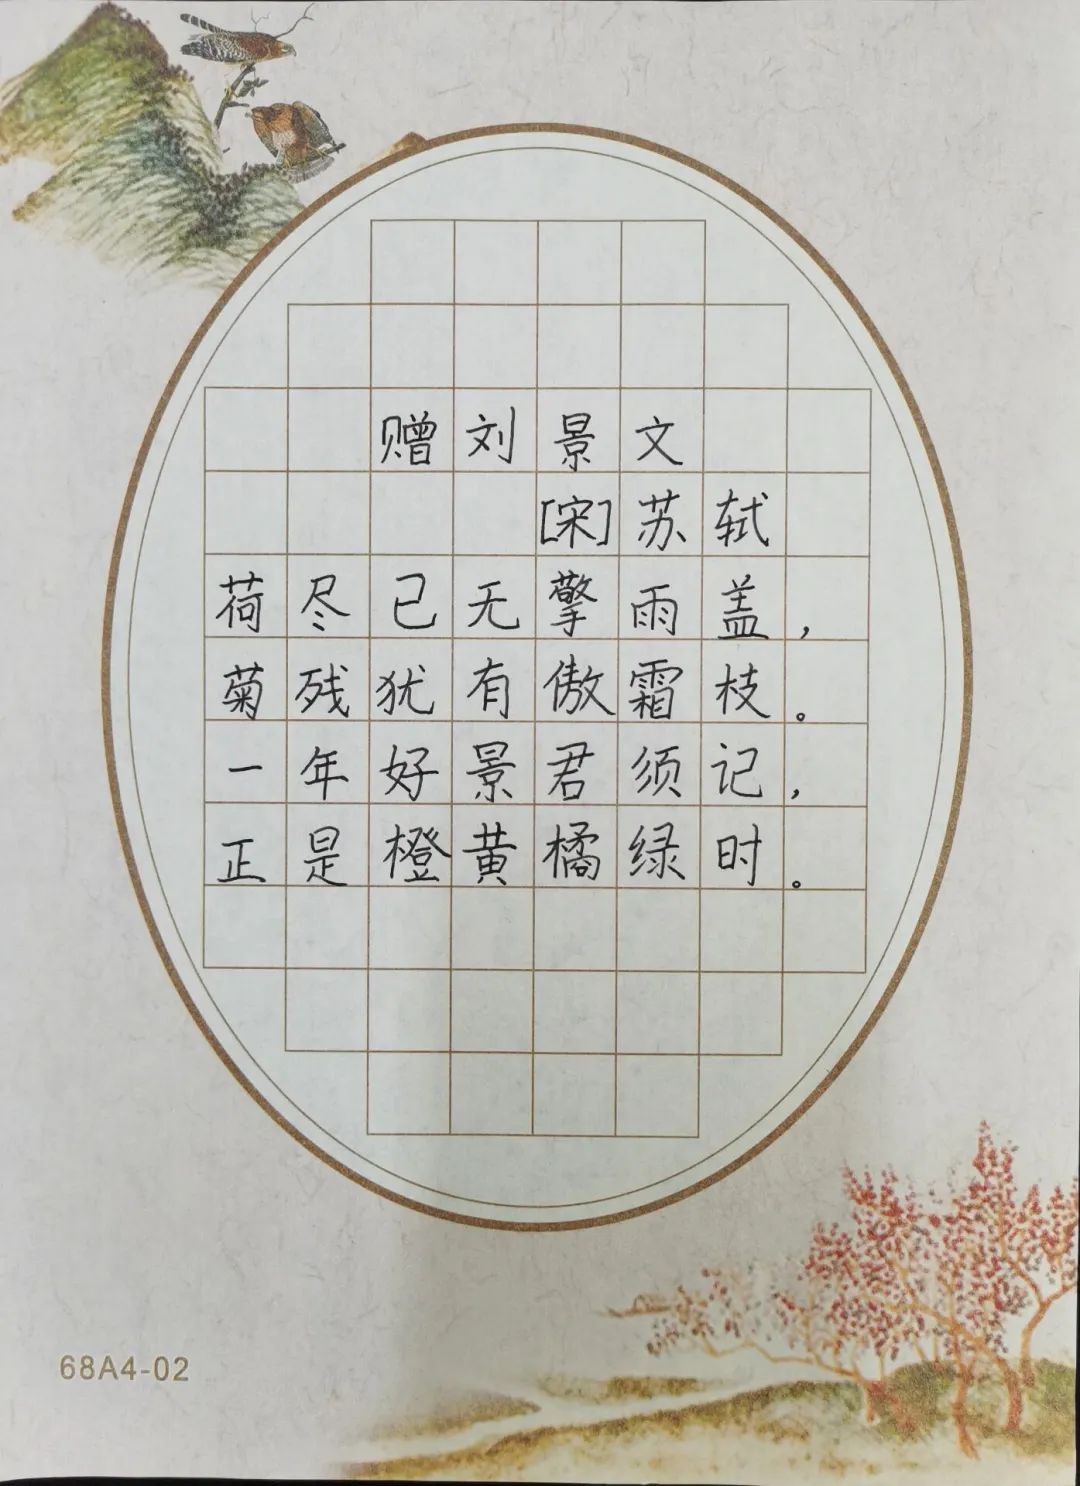 赠刘景文
[宋]苏轼
荷尽已无擎雨盖，
菊残犹有傲霜枝。
一年好景君须记，
正是橙黄橘绿时。
68A4-02